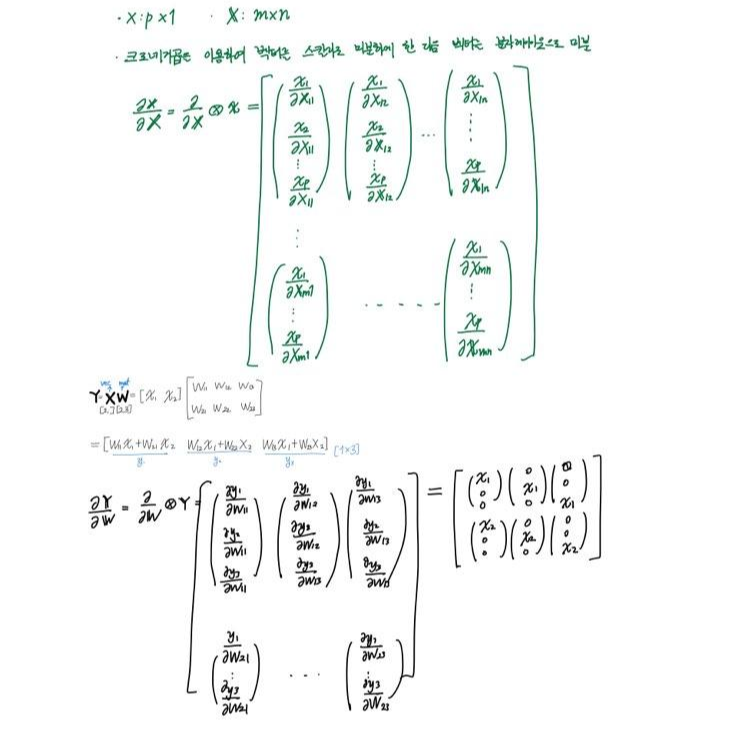 · x: p×1   · X: m×n
· 크로네커곱은 이용하여 벡터는 스칸라로 미분하여 한 다음 벡터는 분자레이아웃으로 미분
∂x/∂X = ∂/∂X ⊗ x = [ (x₁/∂X₁₁ x₂/∂X₁₁ ⋮ xₚ/∂X₁₁) (x₁/∂X₁₂ x₂/∂X₁₂ ⋮ xₚ/∂X₁₂) ··· (x₁/∂X₁ₙ ⋮ xₚ/∂X₁ₙ)
⋮
(x₁/∂Xₘ₁ ⋮ xₚ/∂Xₘ₁) ····· (x₁/∂Xₘₙ ⋮ xₚ/∂Xₘₙ) ]
Y = XW = [x₁ x₂] [W₁₁ W₁₂ W₁₃
W₂₁ W₂₂ W₂₃]
= [W₁₁x₁+W₂₁x₂ W₁₂x₁+W₂₂x₂ W₁₃x₁+W₂₃x₂] [1×3]
y₁ y₂ y₃
∂Y/∂W = ∂/∂W ⊗ Y = [ (∂y₁/∂W₁₁ ∂y₂/∂W₁₁ ∂y₃/∂W₁₁) (∂y₁/∂W₁₂ ∂y₂/∂W₁₂ ∂y₃/∂W₁₃) (∂y₁/∂W₁₃ ∂y₂/∂W₁₃ ∂y₃/∂W₁₃)
(y₁/∂W₂₁ ⋮ ∂y₃/∂W₂₁) ··· (∂y₁/∂W₂₃ ⋮ ∂y₃/∂W₂₃) ]
= [ (x₁ 0 0) (0 x₁ 0) (0 0 x₁)
(x₂ 0 0) (0 x₂ 0) (0 0 x₂) ]